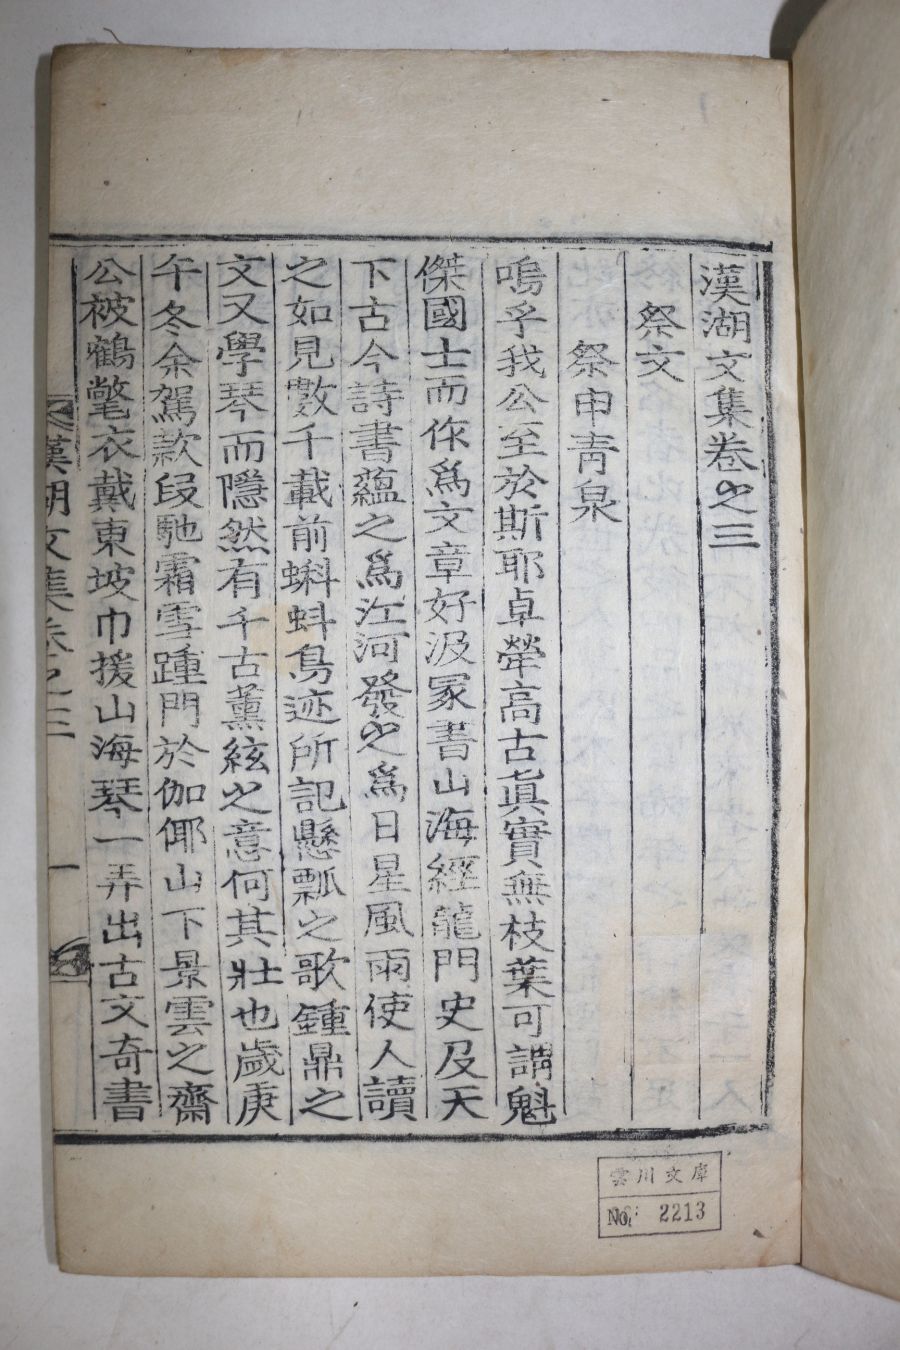 漢湖文集卷之三
祭文
祭申青泉
嗚乎我公至於斯耶卓犖高古眞實無枝葉可謂魁
傑國士而作爲文章好汲冢書山海經龍門史及天
下古今詩書蘊之爲江河發之爲日星風雨使人讀
之如見數千載前蝌蚪鳥迹所記懸瓢之歌鍾鼎之
文又學琴而隱然有千古薰絃之意何其壯也歲庚
午冬余駕款段馳霜雪踵門於伽倻山下景雲之齋
公被鶴氅衣戴東坡巾援山海琴一弄出古文奇書
漢湖文集卷之三
一
雲川文庫
No. 2213